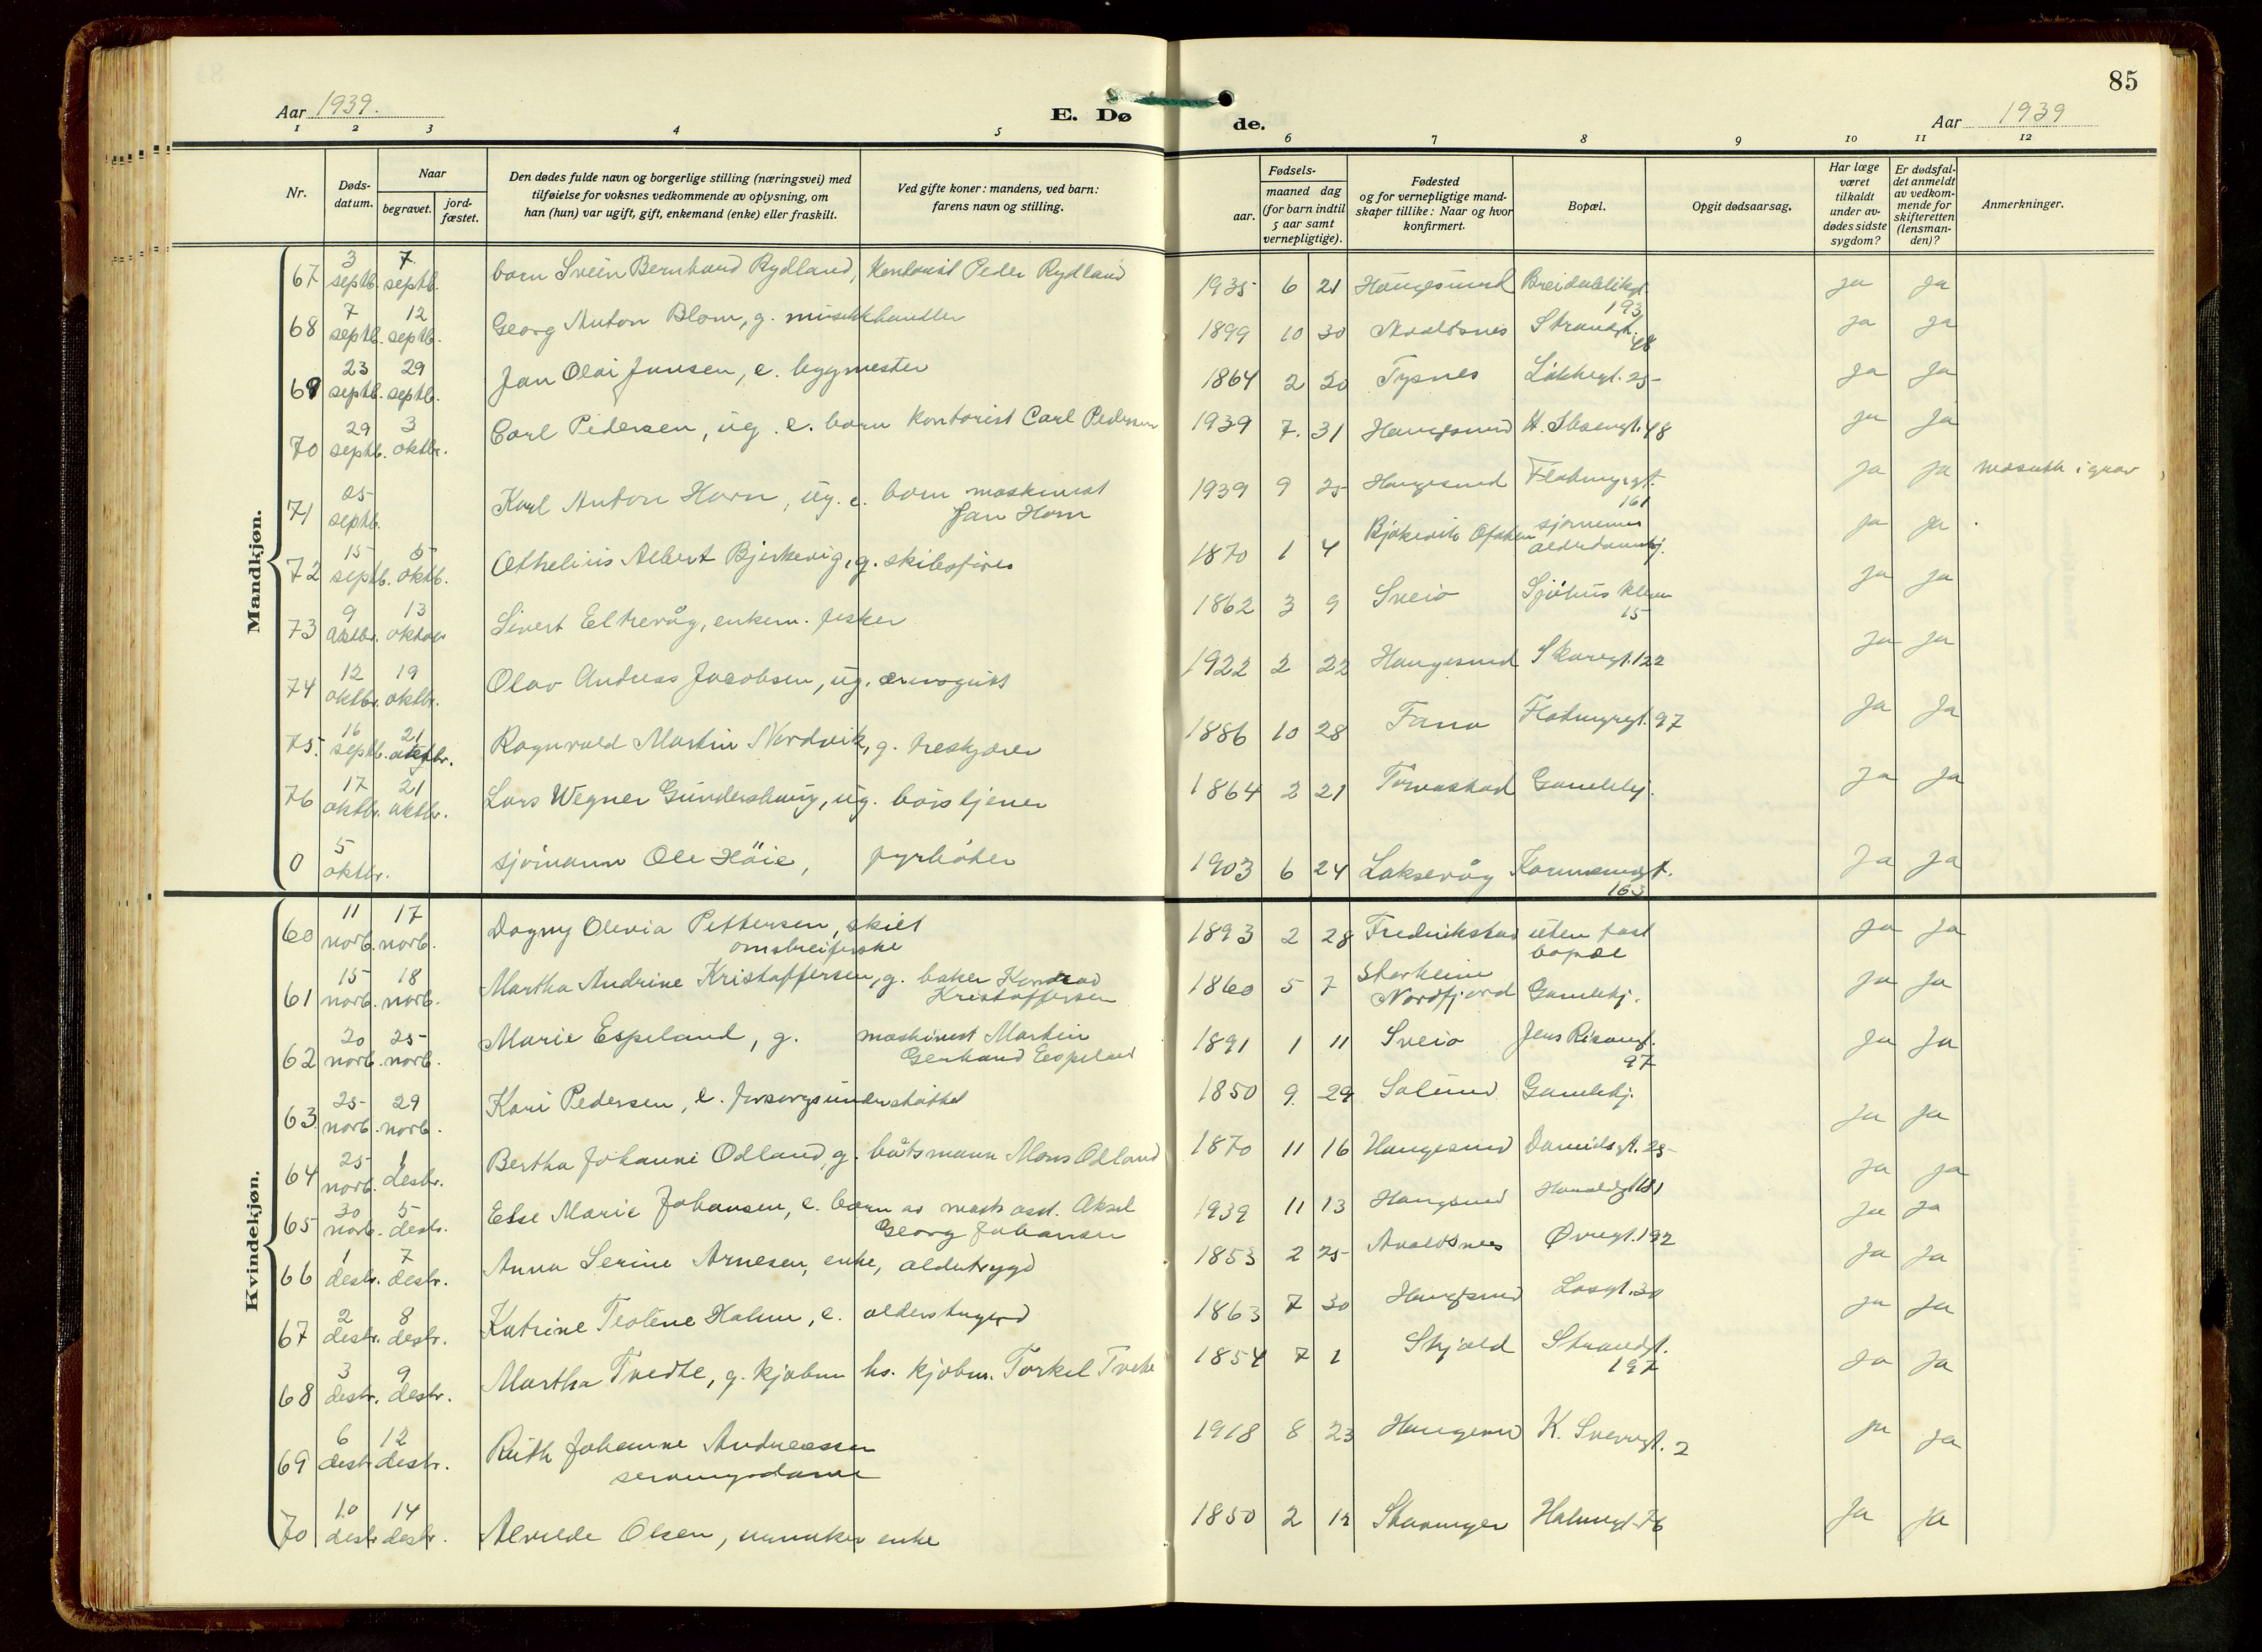 85
Aar 1939.
E. Dø
de.
Aar 1939
1 2 3 4 5 6 7 8 9 10 11 12
Nr.
Døds-
datum.
Naar
begravet.
jord-
fæstet.
Den dødes fulde navn og borgerlige stilling (næringsvei) med
tilføielse for voksnes vedkommende av oplysning, om
han (hun) var ugift, gift, enkemand (enke) eller fraskilt.
Ved gifte koner: mandens, ved barn:
farens navn og stilling.
Fødsels-
aar.
maaned dag
(for barn indtil
5 aar samt
vernepligtige).
Fødested
og for vernepligtige mand-
skaper tillike: Naar og hvor
konfirmert.
Bopæl.
Opgit dødsaarsag.
Har læge
været
tilkaldt
under av-
dødes sidste
sygdom?
Er dødsfal-
det anmeldt
av vedkom-
mende for
skifteretten
(lensman-
den)?
Anmerkninger.
Mandkjøn.
67 3 septb. 7 septb. barn Svein Bernhard Rydland, kontorist Peder Rydland 1935 6 21 Haugesund Breidablikgt. 193 ja ja
68 7 septb. 12 septb. Georg Anton Blom, g. musikkhandler 1899 10 30 Avaldsnes Strandgt. 48 ja ja
69 23 septb. 29 septb. Jan Olai Jansen, e. byggmester 1864 2 20 Tysnes Lökkegt. 25 ja ja
70 29 septb. 3 oktbr. Carl Pedersen, ug. e. barn kontorist Carl Pedersen 1939 7. 31 Haugesund H. Ibsengt. 48 ja ja
71 25 septb. Karl Anton Horn, ug. e. barn maskinist
Jan Horn 1939 9 25 Haugesund Flotmyrgt. 161 ja ja i grav
72 15 septb. 5 oktb. Othelius Albert Bjerkevig, g. skibsfører 1870 1 4 Bjökevik sjömennes
aldersdomshj. ja ja
73 9 oktbr. 13 oktbr Sivert Eltrevåg, enkem. fisker 1862 3 9 Sveio Sjöhus 15 ja ja
74 12 oktbr. 19 oktbr. Olav Andreas Jacobsen, ug. ærensgutt 1922 2 22 Haugesund Skaregt. 122 ja ja
75. 16 septb. 21 Ragnvald Martin Nordvik, g. treskjærer 1886 10 28 Fana Flotmyrgt. 97 ja ja
76 17 oktbr. 21 oktbr. Lars Wegner Gundershaug, ug. havstjener 1864 2 21 Torvastad Gamlehj. ja ja
0 5 oktbr. sjömann Ole Höie, fyrböter 1903 6 24 Laksevåg Karmsundgt. 163 ja ja
Kvindekjøn.
60 11 novb. 17 novb. Dagny Olevia Pettersen, skilt
omstreiferske 1893 2 28 Fredrikstad uten fast
bopæl ja ja
61 15 novb. 18 novb. Martha Andrine Kristoffersen, g. baker Konrad
Kristoffersen 1860 5 7 Starheim
Nordfjord Gamlehj. ja ja
62 20 novb. 25 novb. Marie Espeland, g. maskinist Martin
Gerhard Espeland 1891 1 11 Sveio Jens Risoengt. 97 ja ja
63 25 novb. 29 novb. Kari Pedersen, e. forsorgsunderstöttet 1850 9. 29 Solund Gamlehj. ja ja
64 25 novb. 1 desbr. Bertha Johanne Odland, g. båtsmann Mons Odland 1870 11 16 Haugesund Davidsgt. 25 ja ja
65 30 novb. 5 desbr. Else Marie Johansen, e. barn av mask. asst. Aksel
Georg Johansen 1939 11 13 Haugesund Haraldsgt. 181 ja ja
66 1 desbr. 7 desbr. Anna Serine Arnesen, enke, alderstrygd 1853 2 25 Avaldsnes Øvregt. 192 ja ja
67 2 desbr. 8 desbr. Katrine Teoline Holm, e. alderstrygd 1863 7 30 Haugesund Losgt. 30 ja ja
68 3 desbr. 9 desbr. Martha Tvedte, g. kjøbm hs. kjøbm. Torkel Tvete 1854 7 1 Skjold Strandgt. 197 ja ja
69 6 desbr 12 desbr. Ruth Johanne Andreassen
serveringsdame 1918 8 23 Haugesund K. Sverresgt. 2 ja ja
70 10 desbr 14 desbr. Alvilde Olsen, enke 1850 2 12 Stavanger Holmegt. 76 ja ja